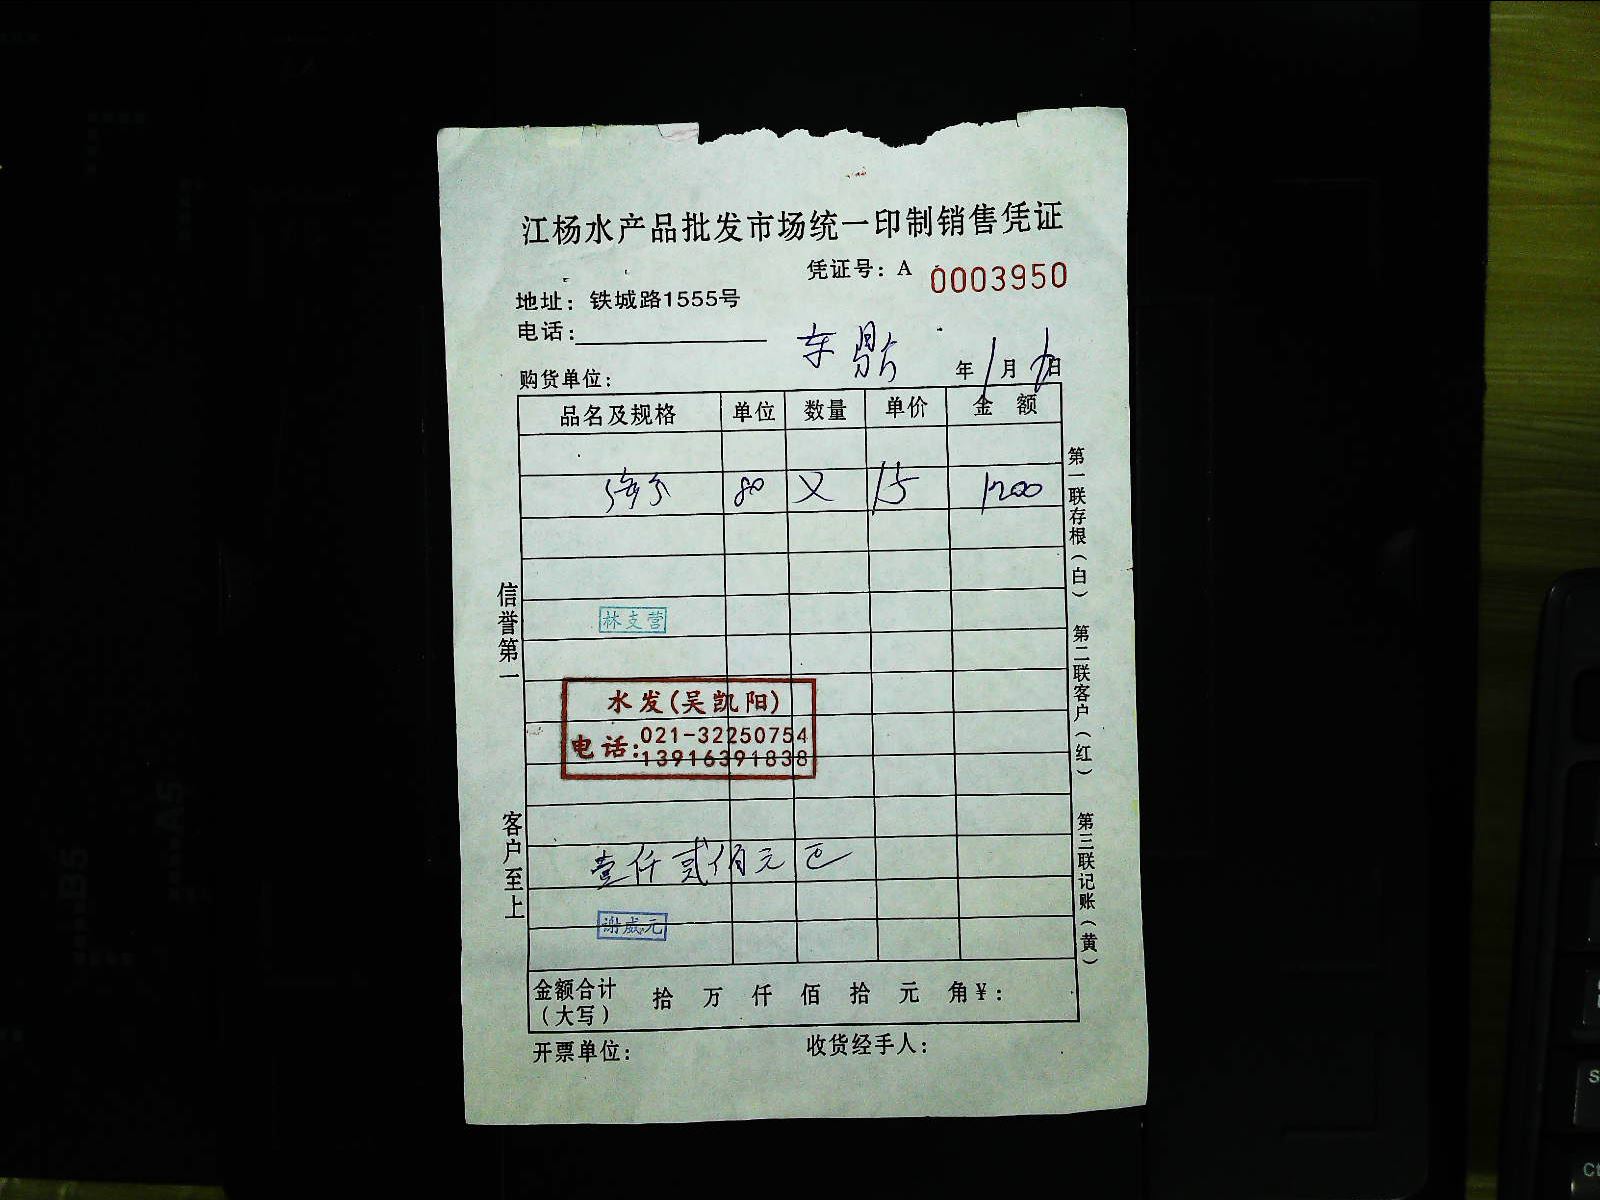 江杨水产品批发市场统一印制销售凭证
凭证号：A 0003950
地址：铁城路1555号
电话：
购货单位：
年 1月 日
品名及规格 单位 数量 单价 金 额
80 15 1200
林支营
水发(吴凯阳)
电话:021-32250754
13916391838
壹仟贰佰元
谢威元
金额合计 拾 万 仟 佰 拾 元 角¥：
（大写）
开票单位： 收货经手人：
信誉第一
客户至上
第一联存根（白）
第二联客户（红）
第三联记账（黄）